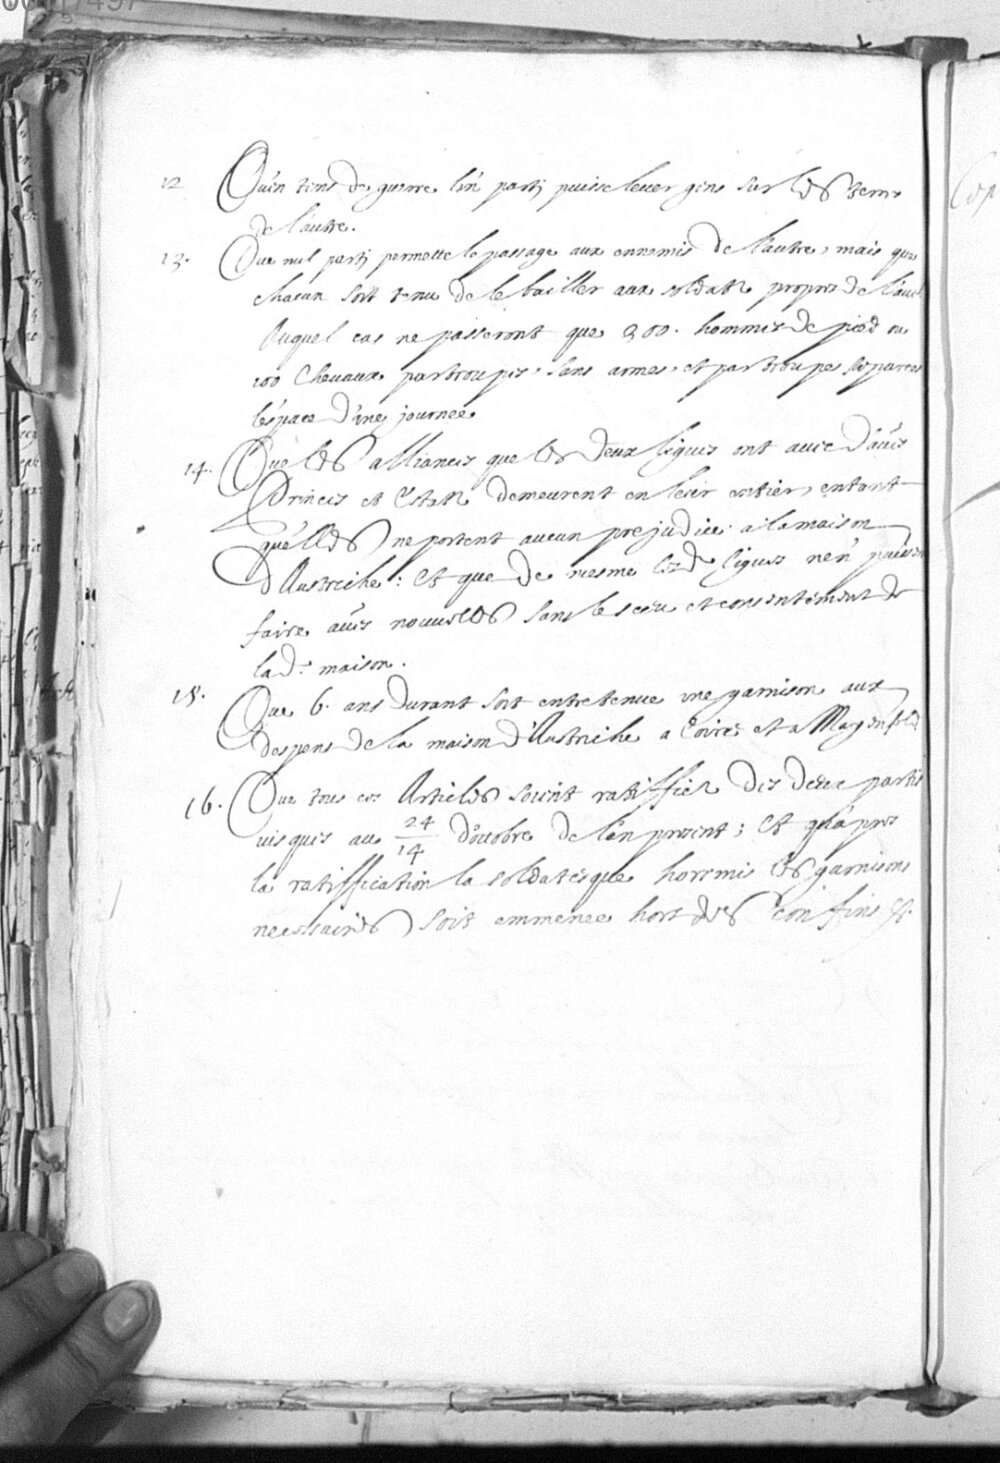 12. Qu'en tems de guerre l'un parti puisse lever gens sur les terres
de l'autre.
13. Que nul parti permette le passage aux ennemis de l'autre, mais que
chacun soit tenu de le bailler aux soldats propres de l'autre
Auquel cas ne passeront que 300. hommes de pied ou
100 Chevaux par troupes, sans armes, et par troupes separees
l'espace d'une journee
14. Que les alliances que les deux ligues ont avec d'autres
Princes et Estats demeurent en leur entier, entant
qu'elles ne portent aucun prejudice a la maison
d'Austriche: Et que de mesme lesd. ligues n'en puissent
faire autres nouvelles sans le sceu et consentement de
lad. maison.
15. Que 6. ans durant soit entretenue une garnison aux
despens de la maison d'Austriche a Coire et a Mayenfeld
16. Que tous ces Articles soient ratiffiez des deux partis
jusques au 24/14 d'octobre de l'an present; Et qu'apres
la ratiffication la soldatesque hormis les garnisons
necessaires soit emmenee hors des confins
Cop